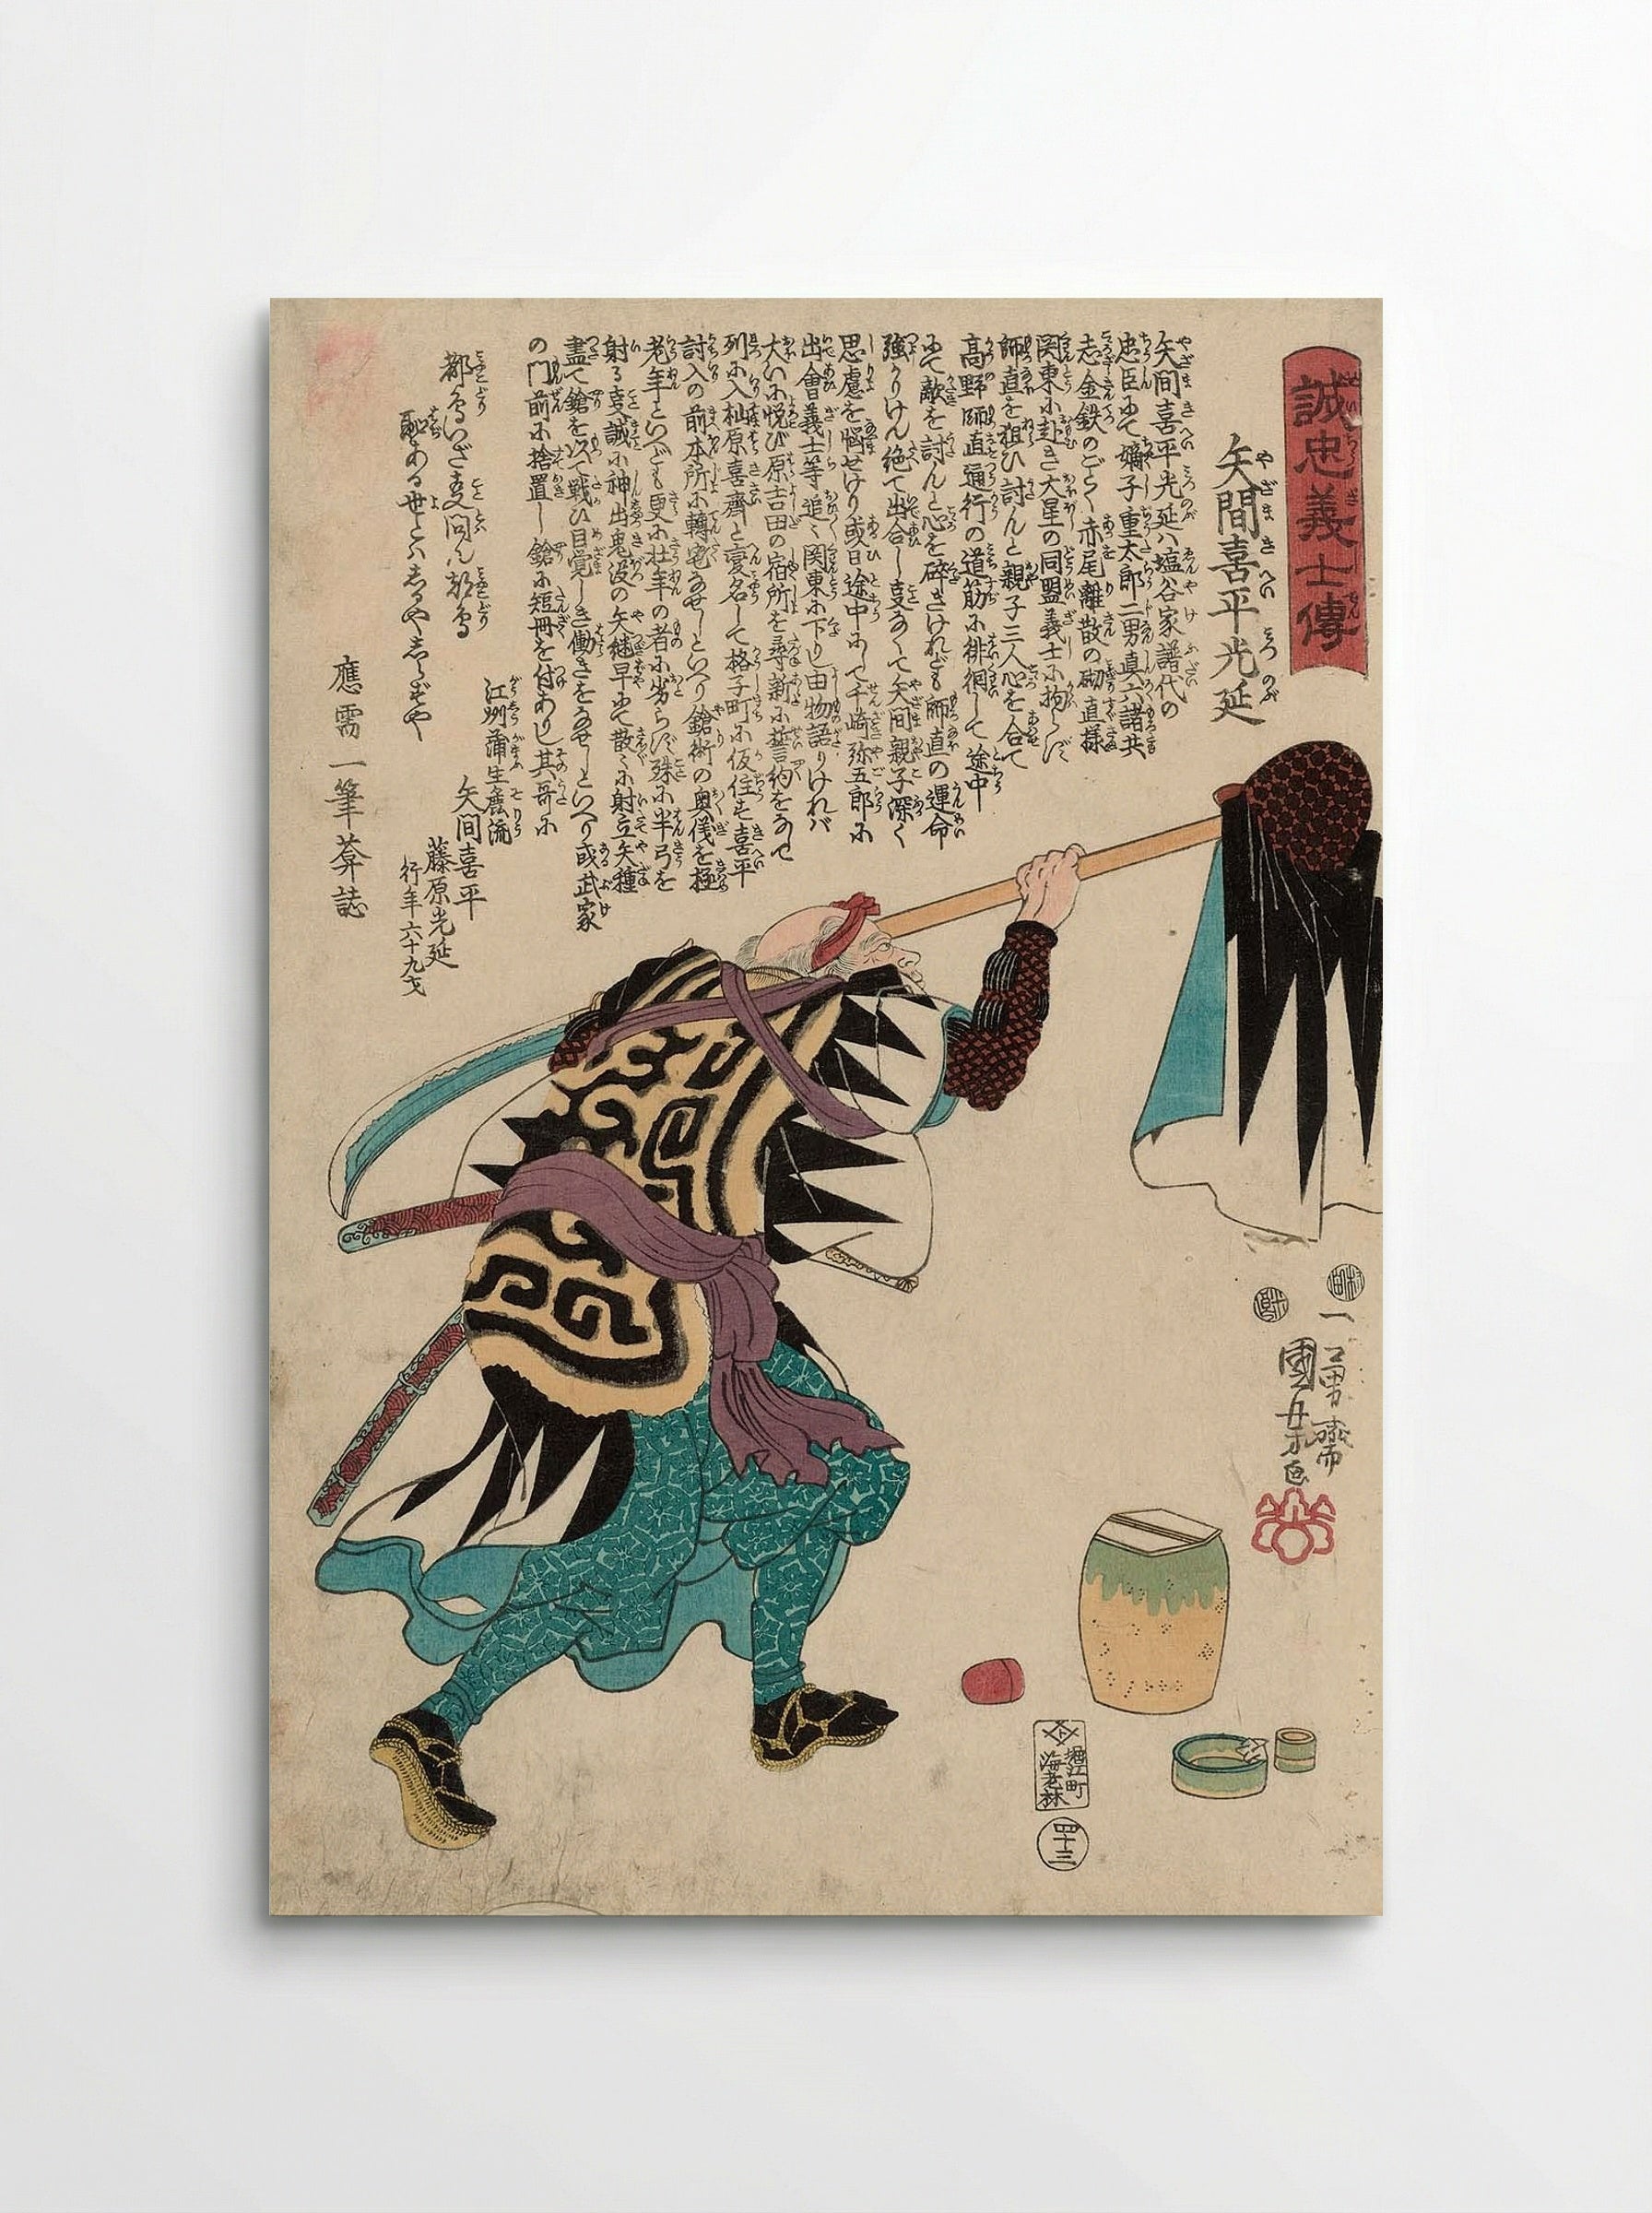 誠忠義士傳
矢間喜平光延
矢間喜平光延ハ塩谷家譜代の
忠臣にて嫡子重太郎二男真六諸共
志金鉄のごとく赤尾離散の砌直様
関東に赴き大星の同盟義士に拘らず
師直を狙ひ討んと親子三人心を合て
高野師直通行の道筋に徘徊して途中
にて敵を討んと心を砕きけれども師直の運命
強かりけん絶て出合し事なくて矢間親子深く
思慮を悩せけり或日途中にて千崎弥五郎に
出會義士等追々関東に下りし由物語りければ
大いに悦び原吉田の宿所を尋新に誓約をなして
列に入杣原喜齋と変名して格子町に仮住す喜平
討入の前本所に轉宅なせしといへり鎗術の奥儀を極
老年といへども更に壮年の者に劣らず殊に半弓を
射る事誠に神出鬼没の矢継早にて散々に射立矢種
盡て鎗を以て戦ひ目覚しき働きをなせしといへり或武家
の門前に捨置し鎗に短冊を付ありし其哥に
都鳥いざ事問ん都鳥
恥ある世とハしるやしらずや
江州蒲生鹿流
矢間喜平
藤原光延
行年六十九才
應需一筆葊誌
一勇齋
國芳画
堀江町
海老林
四十三